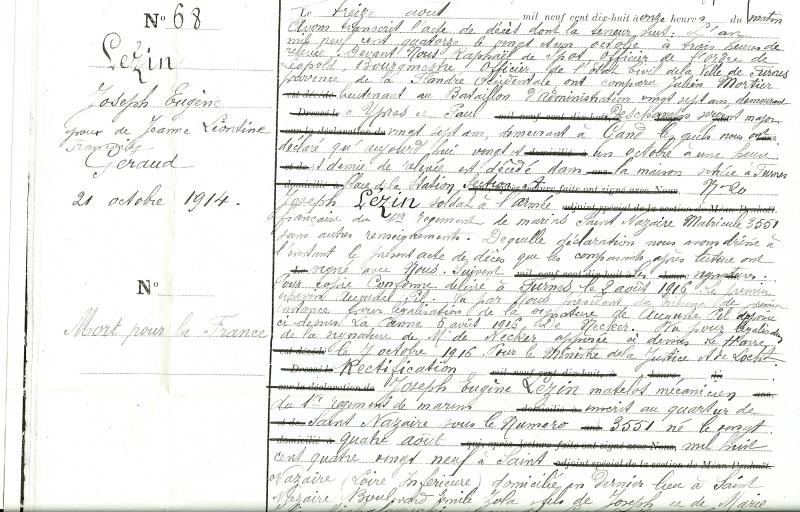 N° 68
Lezin
Joseph Eugène
époux de Jeanne Léontine
Françoise
Geraud
21 octobre 1914.
N°
Mort pour la France
Le treize août mil neuf cent dix-huit à onze heures du matin
Avons transcrit l'acte de décès dont la teneur suit: L'an
mil neuf cent quatorze le vingt et un octobre à trois heures de
relevée, Devant Nous Raphaël de Spot Officier de l'ordre de
Léopold Bourgmestre Officier de l'Etat Civil de la Ville de Furnes
province de la Flandre Occidentale ont comparu Julien Mortier
lieutenant au Bataillon d'Administration vingt sept ans, demeurant
à Ypres et Paul Deschamps sergent major
vingt sept ans, demeurant à Gand lesquels nous ont
déclaré qu'aujourd'hui vingt et un octobre à une heure
et demie de relevée est décédé dans la maison située à Furnes
Place de la Station Section A N° 20
Joseph Lezin soldat à l'armée
française du 1er régiment de marins Saint Nazaire Matricule 3551
sans autres renseignements. De quelle déclaration nous avons dressé à
l'instant le présent acte de décès que les comparants après lecture ont
signé avec Nous. Suivent les signatures.
Pour copie Conforme délivré à Furnes le 2 août 1916 Le premier
échevin Auguste Pil. Vu par Nous président du tribunal de première
instance pour légalisation de la signature de Auguste Pil apposée
ci dessus La Panne 5 août 1916, De Necker. Vu pour légalisation
de la signature de M. de Necker apposée ci dessus Le Havre
le 7 octobre 1916 Pour le Ministre de la Justice A. de Locht.
Rectification
Joseph Eugène Lezin matelot mécanicien
du 1er régiment de marins inscrit au quartier de
Saint Nazaire sous le Numéro 3551 né le vingt
quatre août mil huit
cent quatre vingt neuf à Saint
Nazaire (Loire Inférieure) domicilié en Dernier lieu à Saint
Nazaire Boulevard Emile Zola, fils de Joseph et de Marie